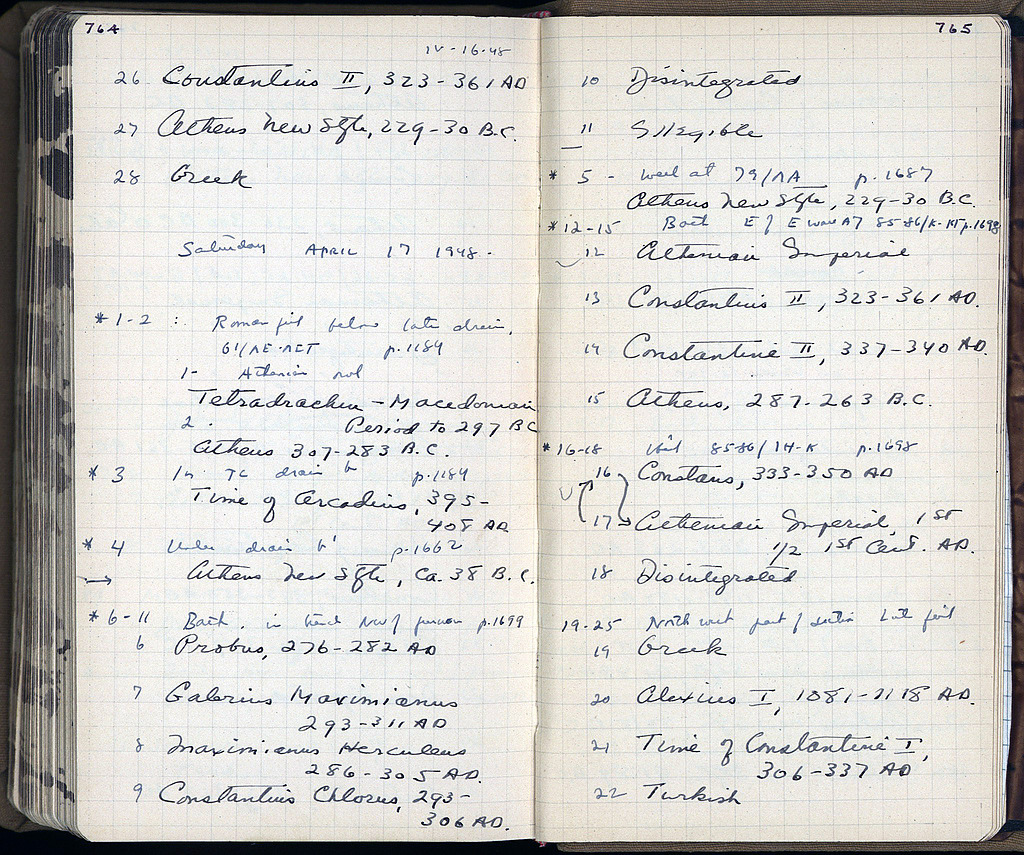 764
IV-16-48
26 Constantius II, 323-361 AD
27 Athens New Style, 229-30 B.C.
28 Greek
Saturday APRIL 17 1948.
*1-2 : Roman pit below late drain,
61/ΛΕ-ΛΣΤ p.1184
1- Athenian owl
Tetradrachm - Macedonian
2. Period to 297 BC
Athens 307-283 B.C.
*3 In TC drain p.1184
Time of Arcadius, 395-
408 AD
*4 Under drain p.1662
→ Athens New Style, Ca. 38 B.C.
*6-11 Byz. in NW p.1699
6 Probus, 276-282 AD
7 Galerius Maximianus
293-311 AD
8 Maximianus Herculeus
286-305 AD.
9 Constantius Chlorus, 293-
306 AD.
765
10 Disintegrated
11 Illegible
*5 - well at 79/ΛΑ p.1687
Athens New Style, 229-30 B.C.
*12-15 E of E 85-86/ p.1698
12 Athenian Imperial
13 Constantius II, 323-361 AD.
14 Constantine II, 337-340 AD.
15 Athens, 287-263 B.C.
*16-18 85-86/ΙΗ-Κ p.1698
16 Constans, 333-350 AD
17 Athenian Imperial, 1st
1/2 1st Cent. AD.
18 Disintegrated
19-25 North west part of section Late fill
19 Greek
20 Alexius I, 1081-1118 AD.
21 Time of Constantine I,
306-337 AD.
22 Turkish